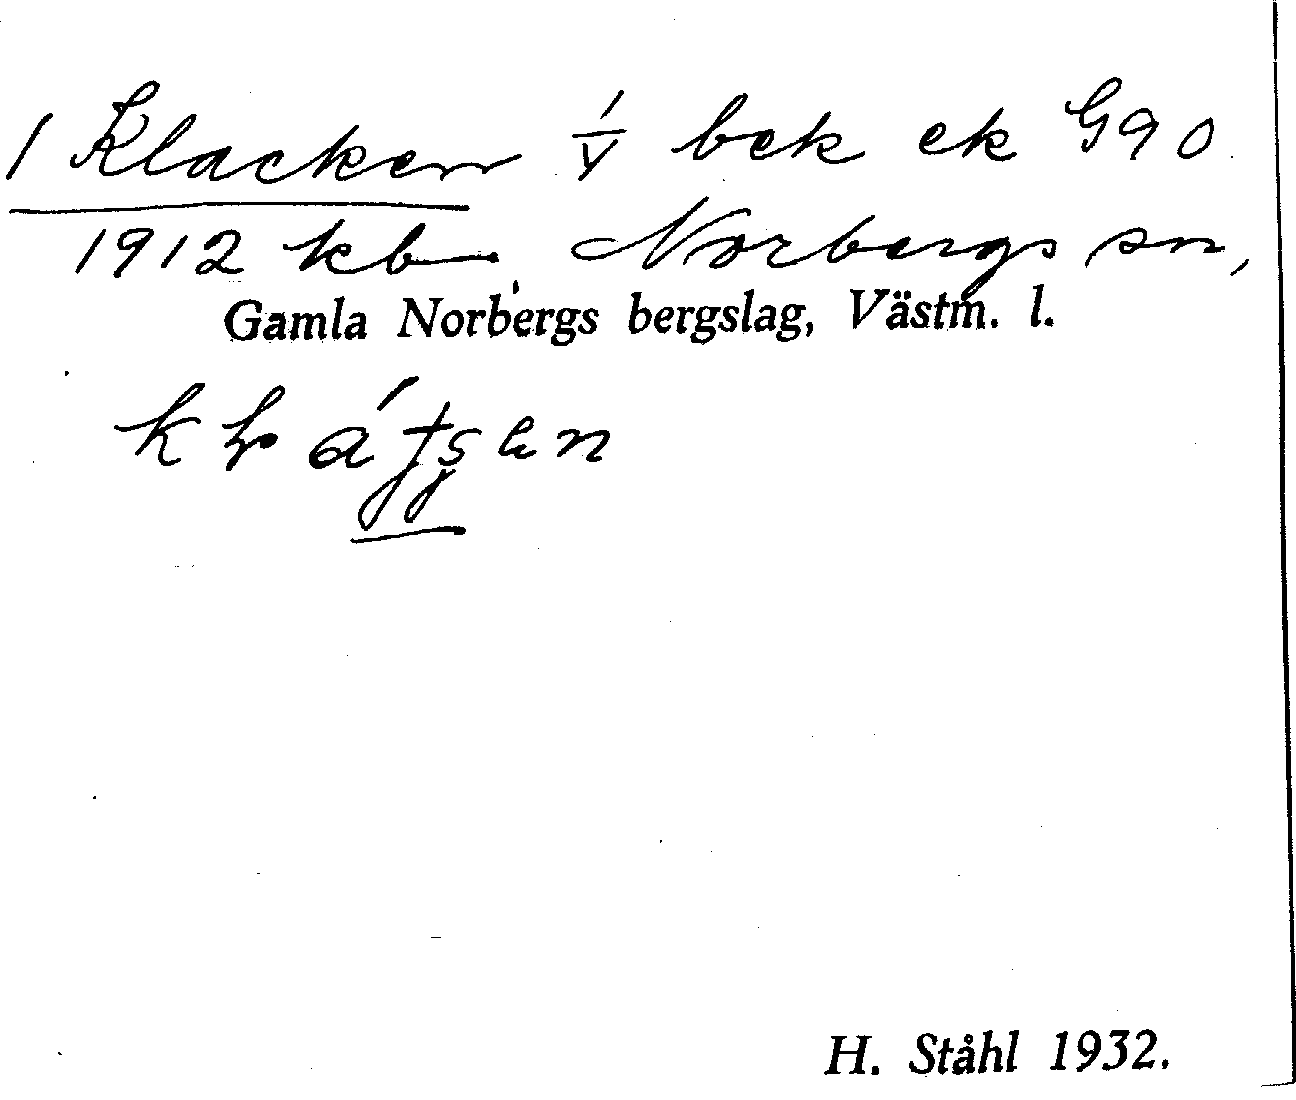 1 Klacken 1/V bek ek G90
1912 kb. Norbergs sn,
Gamla Norbergs bergslag, Västm. l.
H. Ståhl 1932.